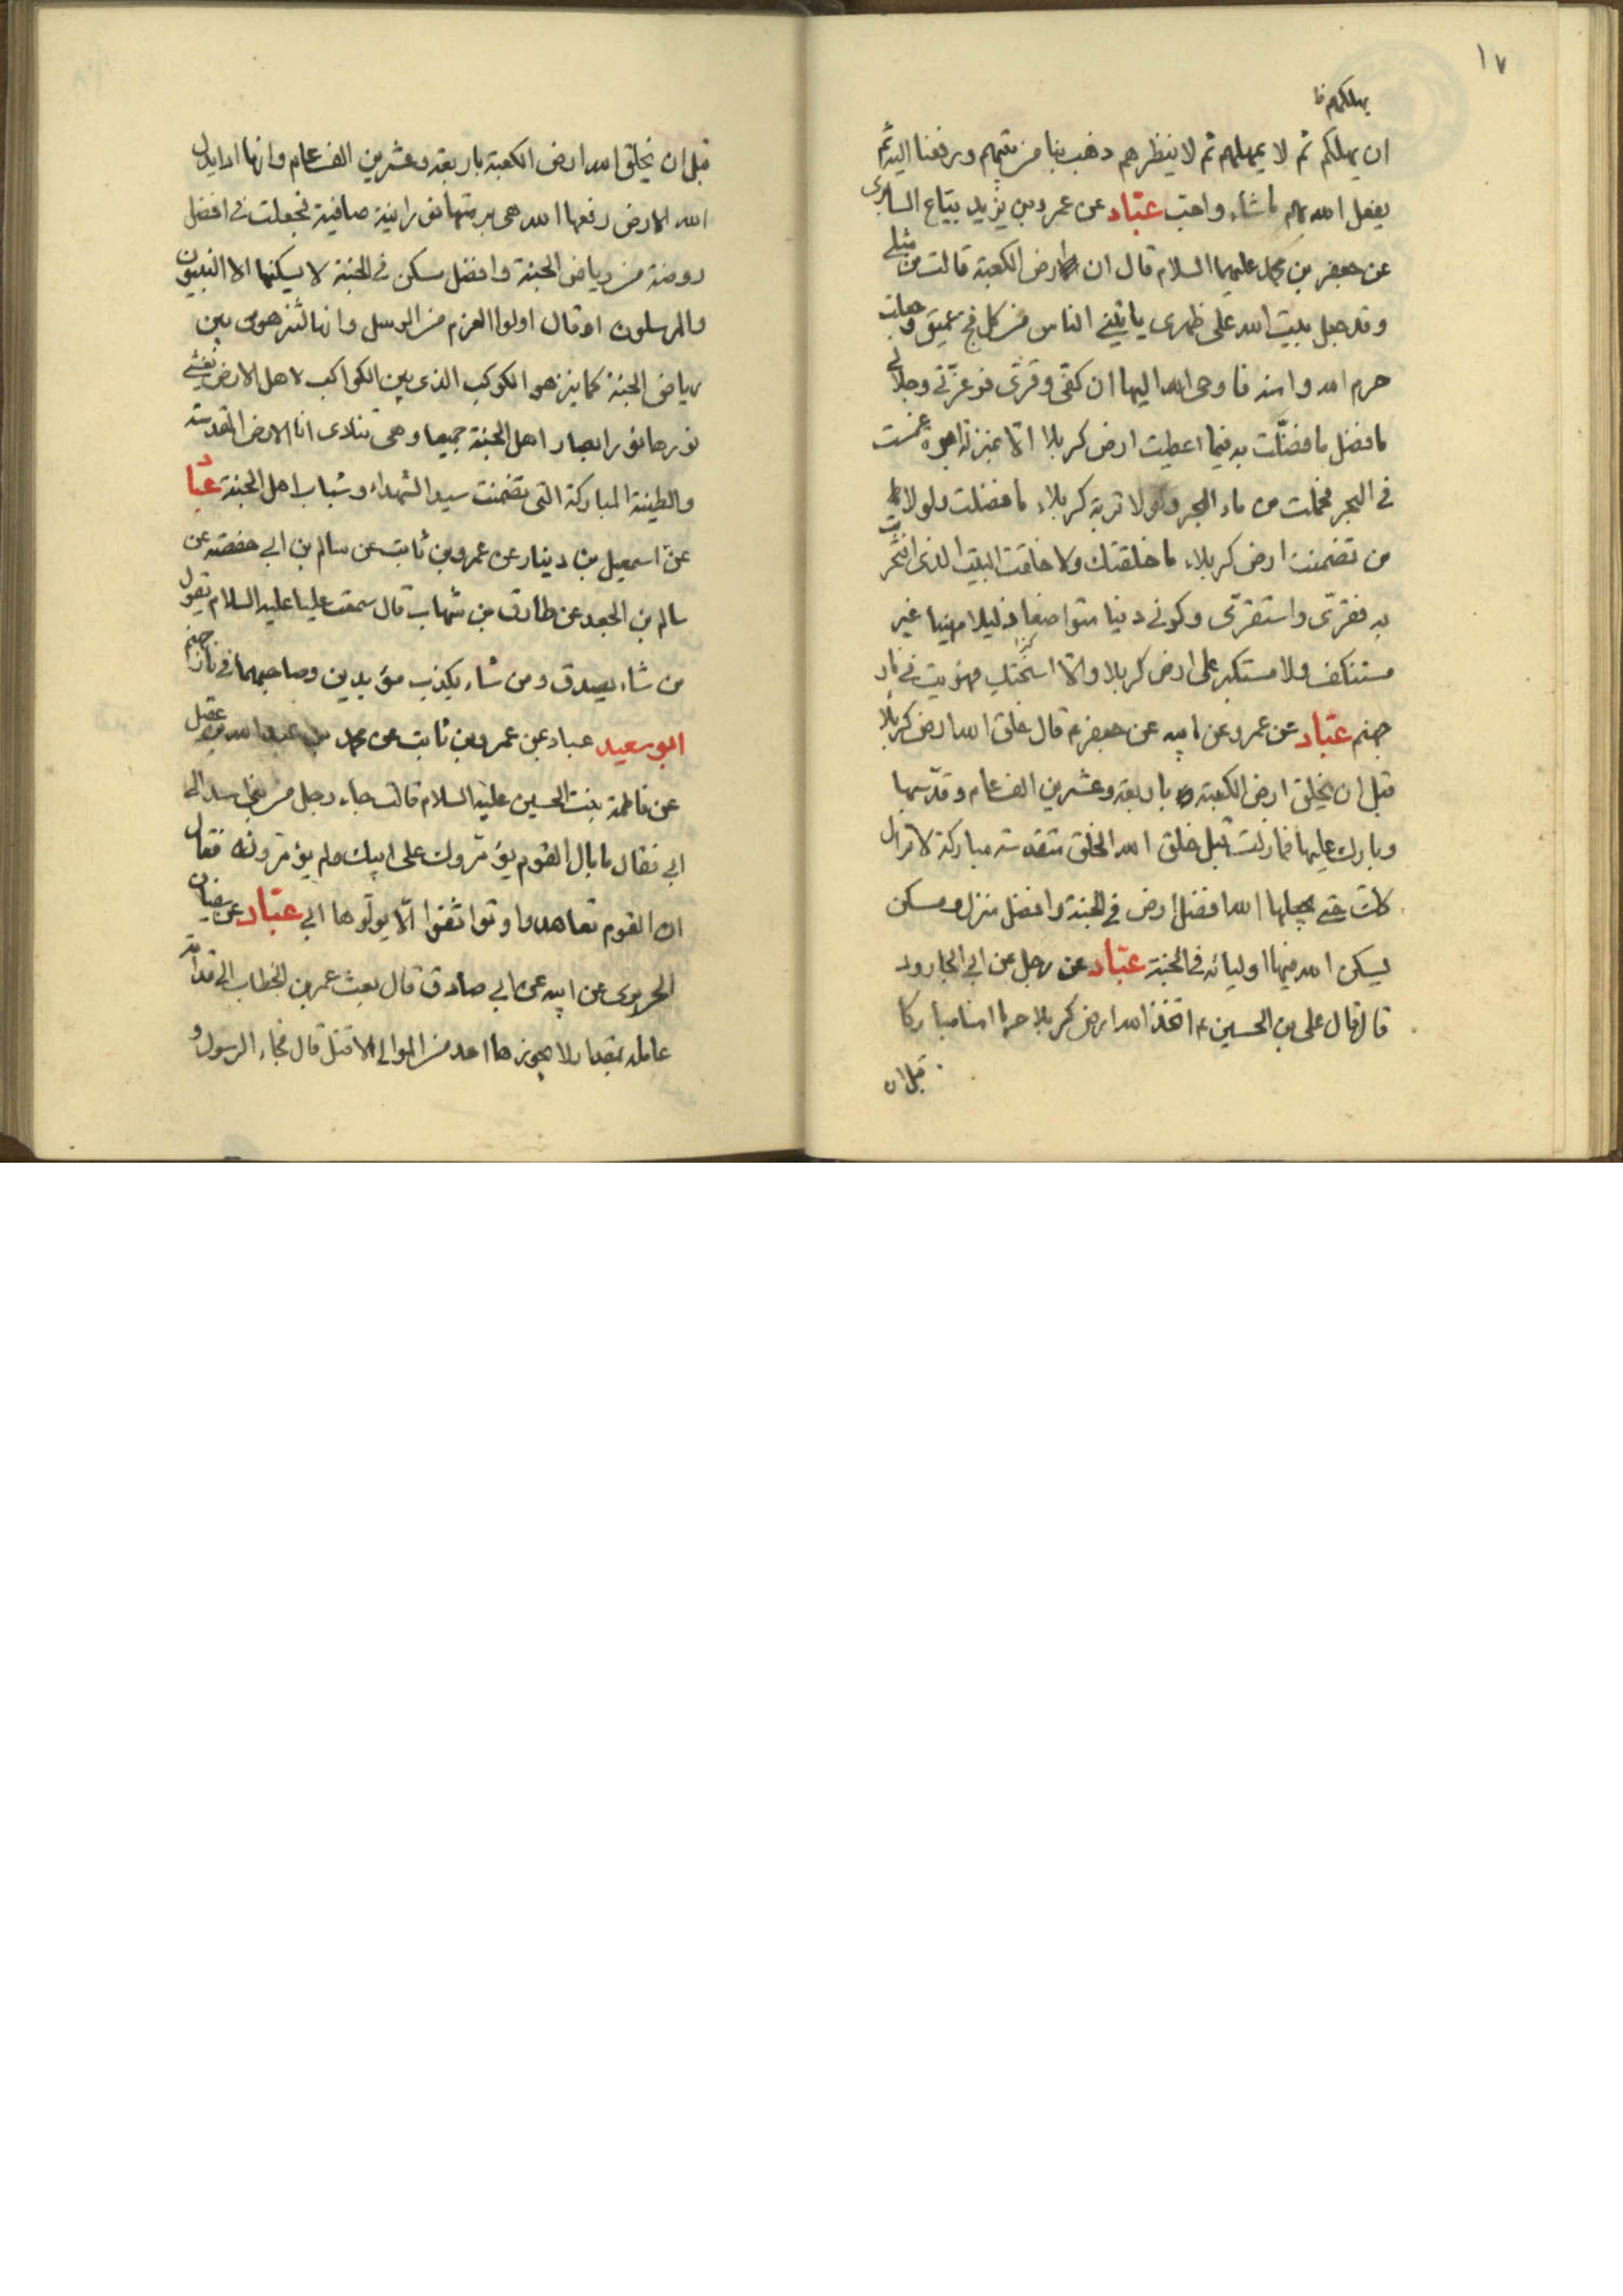 ١٧
يهلكهم ظ
ان يهلكم ثم لا يمهلهم ثم لا ينظرهم ذهب بنا من بينهم ورفعنا اليه ثم
يفعل الله بهم ما شاء واحب عبّاد عن عمرو بن يزيد بياع السابرى
عن جعفر بن محمد عليهما السلام قال ان ارض الكعبة قالت من مثلي
وقد جعل بيت الله على ظهرى ياتيني الناس من كل فج عميق وجعلت
حرم الله وامنه فاوحى الله اليها ان كفى وقرى فوعزتي وجلالي
ما فضل ما فضلت به فيما اعطيت ارض كربلا الا بمنزلة الابرة غمست
في البحر فحملت من ماء البحر ولولا تربة كربلاء ما فضلت ولولا
من تضمنت ارض كربلاء ما خلقتك ولا خلقت البيت الذى افتخرت
به فقرى واستقرى وكونى دنيا متواضعا ذليلا مهينا غير
مستنكف ولا مستكبر على ارض كربلا والا اسختك فهويت في نار
جهنم عبّاد عن عمرو عن ابيه عن جعفر ع قال خلق الله ارض كربلا
قبل ان يخلق ارض الكعبة باربعة وعشرين الف عام وقدسها
وبارك عليها فمازلت قبل خلق الله الخلق مقدسة مباركة لا تزال
كذلك حتى يجعلها الله افضل ارض في الجنة وافضل منزل ومسكن
يسكن الله فيها اوليائه في الجنة عبّاد عن رجل عن ابي الجارود
قال قال على بن الحسين ع اتخذ الله ارض كربلا حرما امنا مباركا
قبل ان
قبل ان يخلق الله ارض الكعبة باربعة وعشرين الف عام وانها اذا بدل
الله الارض رفعها الله هى برمتها نورانية صافية فجعلت في افضل
روضة من رياض الجنة وافضل مسكن في الجنة لا يسكنها الا النبيون
والمرسلون او قال اولوا العزم من الرسل وانها لتزهر بين
رياض الجنة كما يزهو الكوكب الذى بين الكواكب لاهل الارض يغشى
نورها نور ابصار اهل الجنة جميعا وهى تنادى انا الارض المقدسة
والطينة المباركة التى تضمنت سيد الشهداء وشباب اهل الجنة عبّاد
عن اسمعيل بن دينار عن عمرو بن ثابت عن سالم بن ابي حفصة عن
سالم بن الجعد عن طارق بن شهاب قال سمعت عليا عليه السلام يقول
من شاء يصدق ومن شاء يكذب وصاحبهما في نار جهنم
ابو سعيد عباد عن عمرو بن ثابت عن محمد بن عبد الله بن عقيل
عن فاطمة بنت الحسين عليه السلام قالت جاء رجل من الى
ابي فقال ما بال القوم يؤمّرون على ابيك ولم يؤمّرونه فقال
ان القوم تعاهدوا وتواثقوا الّا يولّوها ابي عبّاد عن سفيان
الحريرى عن ابيه عن ابي صادق قال بعث عمر بن الخطاب الى قدامة
عامله بمقدار لا يجوزها احد من الموالى الا قتل قال فجاء الرسول و